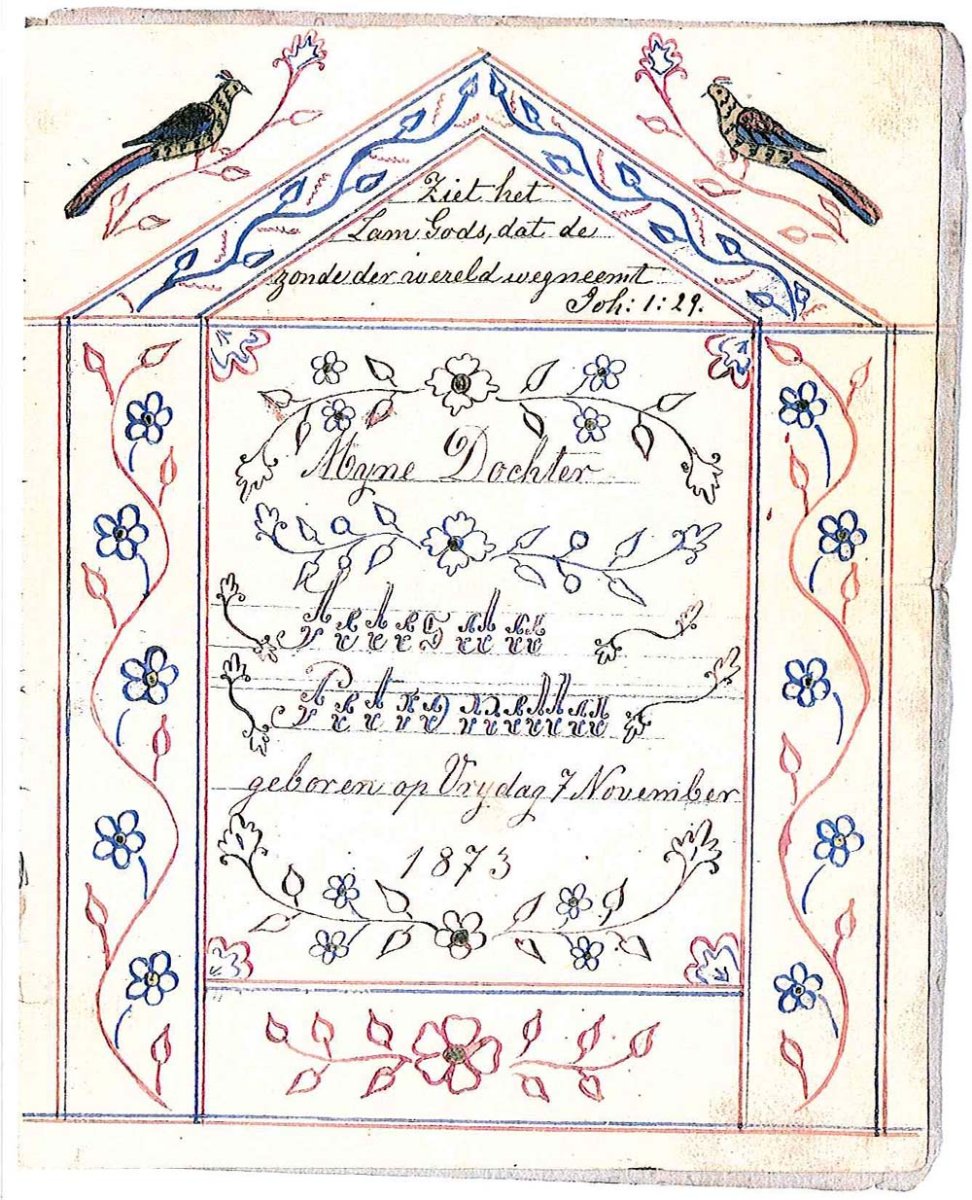 Ziet het
Lam Gods, dat de
zonde der wereld wegneemt
Joh: 1: 29.
Myne Dochter
Petronella
geboren op Vrydag 7 November
1873